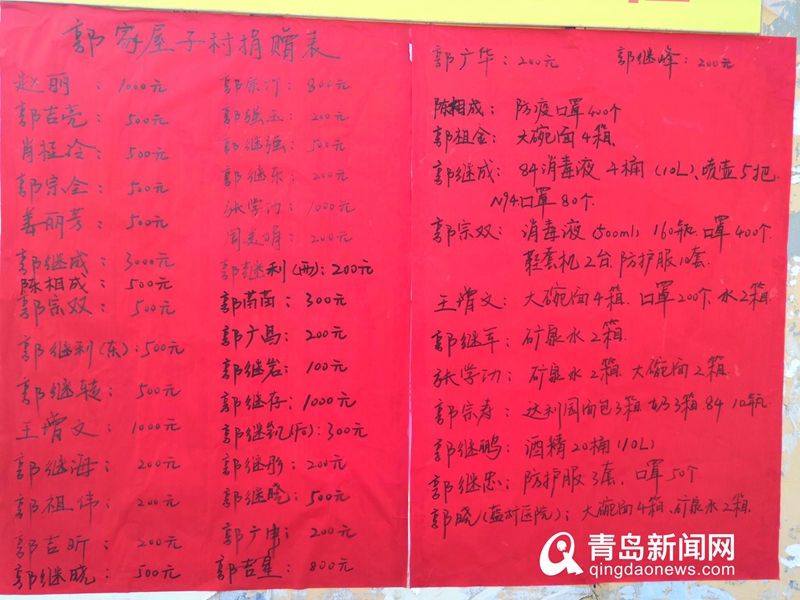 郭家屋子村捐赠表
赵丽：1000元
郭吉亮：500元
肖程冷：500元
郭宗全：500元
姜丽芳：500元
郭继成：3000元
陈相成：500元
郭宗双：500元
郭继利(东)：500元
郭继: 500元
王增文：1000元
郭继海：200元
郭祖伟：200元
郭吉昕：200元
郭继晓：500元
郭宗沂：800元
郭强玉：200元
郭继强：500元
郭继东：200元
张学功：1000元
周美娟：200元
郭继利(西)：200元
郭苗苗：300元
郭广昌：200元
郭继岩：100元
郭继存：1000元
郭继凯(后)：300元
郭继彤：200元
郭继晓：500元
郭广伟：200元
郭吉星：800元
郭广华：200元
郭继峰：200元
陈相成：防疫口罩400个
郭祖金：大碗面4箱.
郭继成：84消毒液4桶(10L)、喷壶5把.
N94口罩80个.
郭宗双：消毒液(500ml) 160瓶.口罩400个
鞋套机2台.防护服10套.
王增文：大碗面4箱.口罩200个.水2箱.
郭继军：矿泉水2箱.
张学功：矿泉水2箱.大碗面2箱.
郭宗寿：达利园面包3箱.奶3箱.84 10瓶
郭继鹏：酒精20桶(10L)
郭继忠：防护服3套、口罩50个
郭晓(盐村医院)：大碗面4箱、矿泉水2箱.
青岛新闻网
qingdaonews.com